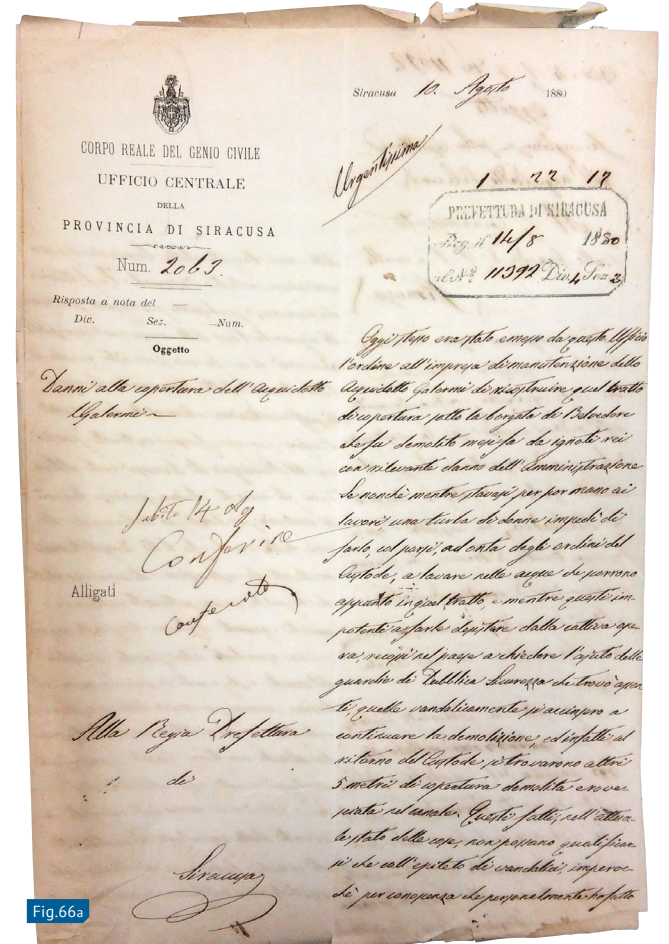 Siracusa 10. Agosto 1880
CORPO REALE DEL GENIO CIVILE
UFFICIO CENTRALE
DELLA
PROVINCIA DI SIRACUSA
Num. 2063.
Risposta a nota del
Div. Sez. Num.
Oggetto
Danni alla copertura dell'Acquidotto
Galermi
Subito 14 Ag
Conferire
Conferito
Alligati
Alla Regia Prefettura
di
Siracusa
Urgentissima
1 22 17
PREFETTURA DI SIRACUSA
Reg. il 14/8 1880
al No. 11392 Div. 4 Sez 2
Oggi stesso era stato emesso da questo Uffizio
l'ordine all'impresa di manutenzione dello
Acquidotto Galermi di ricostruire quel tratto
di copertura sotto la borgata di Belvedere
che fu demolito mesi fa da ignoti rei
con rilevante danno dell'Amministrazione
Se nonchè mentre stavasi per por mano ai
lavori, una turba di donne impedì di
farlo, col porsi, ad onta degli ordini del
Custode, a lavare nelle acque che scorrono
appunto in quel tratto, e mentre questi im-
potente a farle desistere dalla cattiva ope
ra, recossi nel paese a chiedere l'ajuto delle
guardie di Pubblica Sicurezza che trovò assen
ti, quelle vandalicamente si accinsero a
continuare la demolizione, ed infatti al
ritorno del Custode si trovarono altri
5 metri di copertura demolita e rove
sciata nel canale. Questi fatti, nell'attua
le stato delle cose, non possono qualificar
si che coll'epiteto di vandalici, imperoc
chè per conoscenza che personalmente ho fatto
Fig.66a